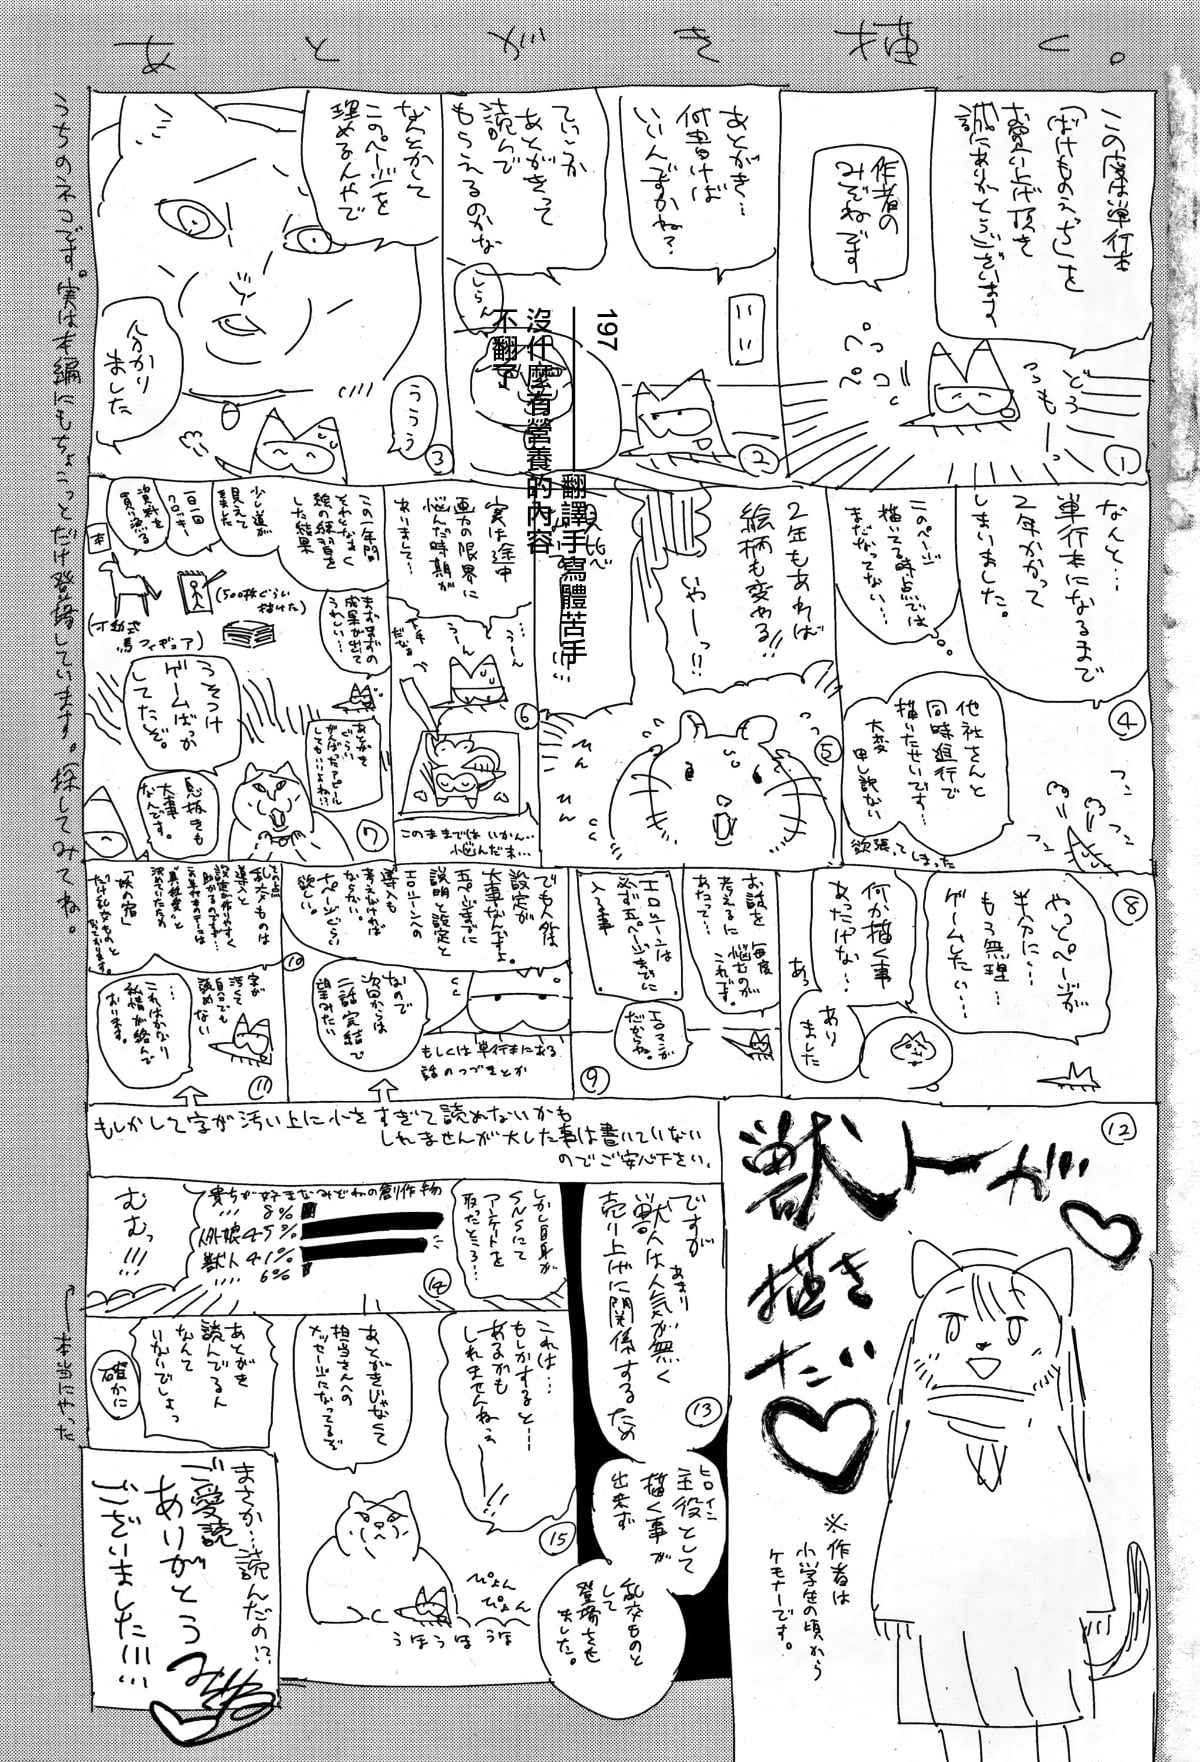 あとがき描く。
この度は単行本
「ばけものえっち」を
お買い上げ頂き
誠にありがとうございます
作者の
みぞねです
どうも〜っ
ペコペコッ
①
あとがき…
何書けば
いいんですかね?
②
ていうか
あとがきって
読んで
もらえるのかな
しらん
なんとかして
このページを
埋めるんやで
ううう
分かり
ました
③
197
翻譯手寫體苦手
沒什麼有營養的內容
不翻了
なんと…
単行本になるまで
2年かかって
しまいました。
このページ
描いてる時点では
まだなってない…
他社さんと
同時進行で
描いたせいです…
大変
申し訳ない
欲張ってしまった
④
2年もあれば
絵柄も変わる!!
いやーっ!!
ひん
ひん
⑤
実は途中
画力の限界に
悩んだ時期が
ありまして…
うーん
…うーん
下手
だなぁ
このままではいかん…
悩んだ末…
⑥
この一年間
それとなく
絵の練習を
した結果
少し道が
見えて
きました
一日一回
クロッキー
資料を
買い漁る
本
(500枚ぐらい
描けた)
(可動式
馬フィギュア)
まずまずの
成果が出て
うれしい…
あとがき
ぐらい
がんばったアピール
してもいいよね!?
うそつけ
ゲームばっか
してたぞ。
息抜きも
大事
なんです。
⑦
やっとページが
半分に…
もう無理…
ゲームしたい…
⑧
何か描く事
あったかな…
あっ
あり
ました
お話を
考えるに
あたって…
毎度
悩むのが
これです。
エロシーンは
必ず五ページまでに
入る事
エロマンガ
だからね。
⑨
でも人外は
設定が
大事なんですよ。
五ページまでに
説明と設定と
エロシーンへの
導入も
考えなければ
ならない。
十ページぐらい
欲しい。
なので
次回からは
二話完結で
望みたい
もしくは単行本にある
話のつづきとか
⑩
その点
乱交ものは
導入と
設定が作りやすく
助かるのですが…
「妖の宿」
だけ乱交ものと
なっております。
字が
汚くて
自分でも
読めない
…
これはかなり
私情が絡んで
おります。
⑪
もしかして字が汚い上に小さすぎて読めないかも
しれませんが大した事は書いていない
のでご安心下さい。
⑫
獣トーが
描き
たい
※作者は
小学生の頃から
ケモナーです。
ですが
獣人はあまり
人気が無く
売り上げに関係するため
⑬
主役として
ヒロイン
描く事が
出来ず
乱交ものと
して
登場させ
ました。
しかし自身が
SNSにて
アンケートを
取ったところ…
貴方が好きなみぞねの創作物
〃〃〃 8%
人外娘 45%
獣人 41%
〃〃〃 6%
むむっ!!!
⑭
これは…
もしかすると…
あるかも
しれませんねぇ
ーー!!
⑮
あとがきじゃなくて
担当さんへの
メッセージになってるぞ
ぴょん
ぴょん
うほうほ うほ
あとがき
読んでるん
なんて
いないでしょっ
確かに
まさか…読んだの!?
ご愛読
ありがとう
ございました!!!
みぞね
うちのネコです。実は本編にもちょこっとだけ登場しています。探してみてね。
本当にやった